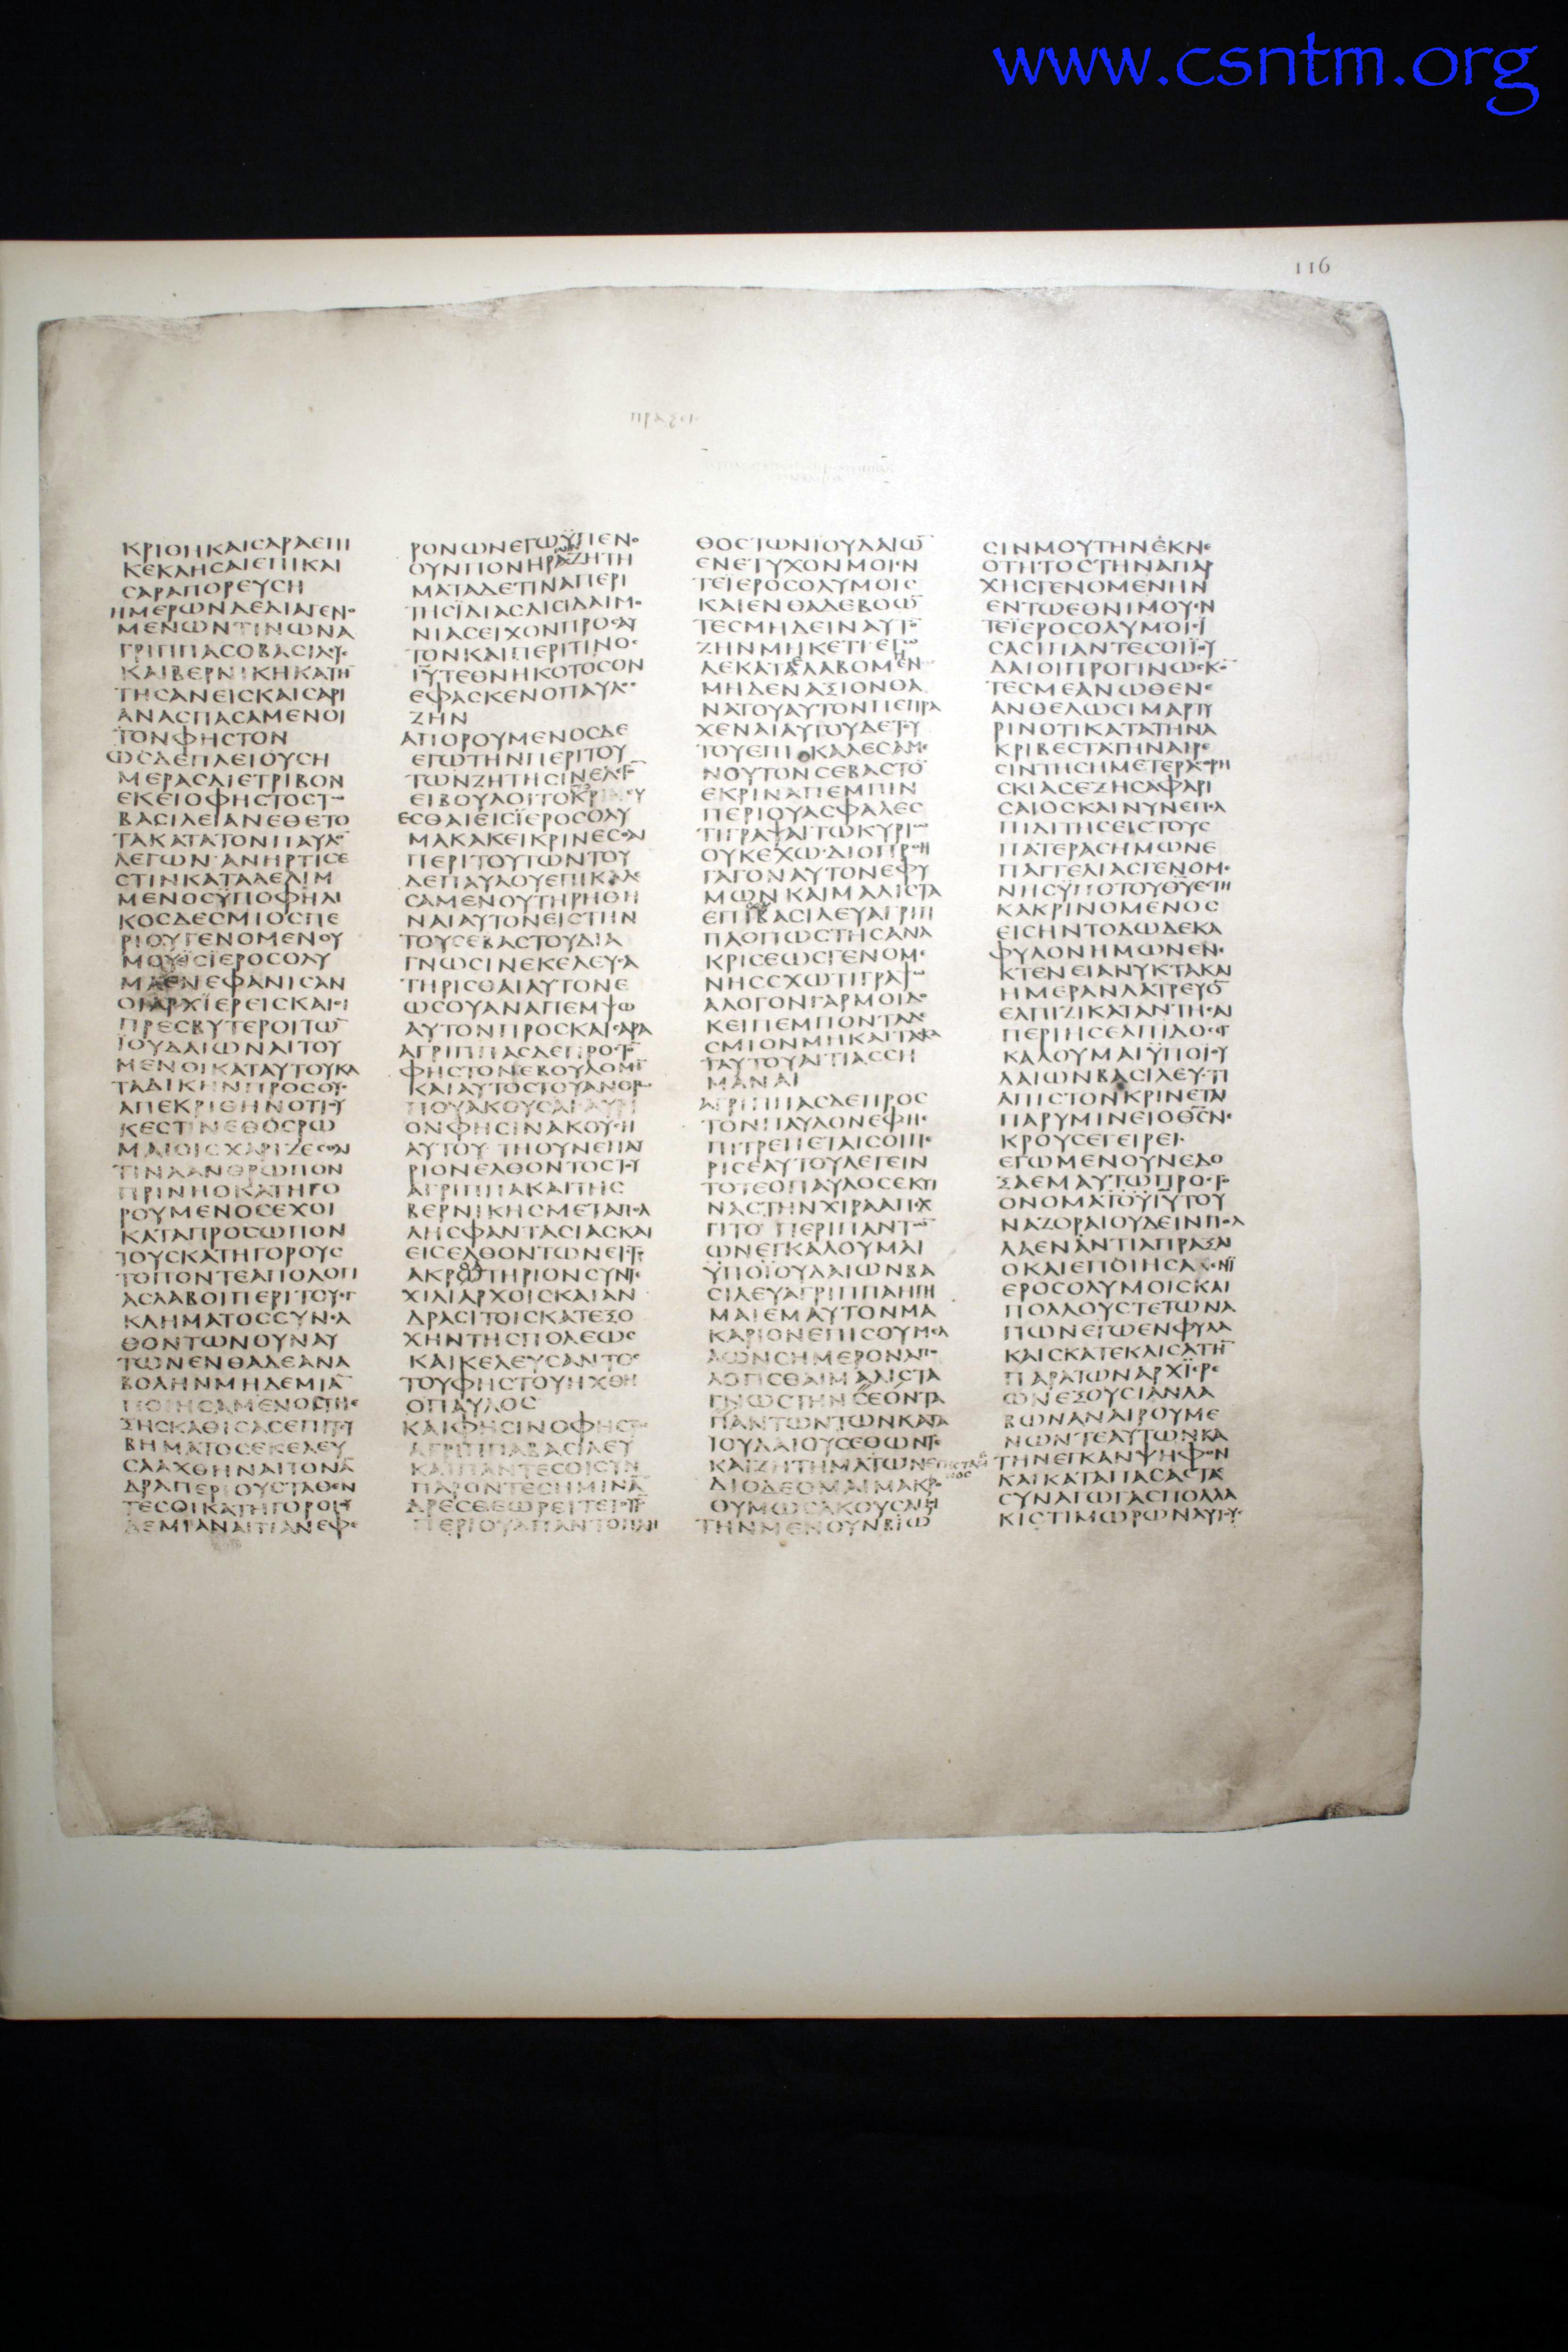 www.csntm.org
116
ΚΡΙΘΗΚΑΙΣΑΡΑΕΠΙ
ΚΕΚΛΗΣΑΙΕΠΙΚΑΙ
ΣΑΡΑΠΟΡΕΥΣΗ
ΗΜΕΡΩΝΔΕΔΙΑΓΕΝΟ
ΜΕΝΩΝΤΙΝΩΝΑ
ΓΡΙΠΠΑΣΟΒΑΣΙΛΕΥΣ
ΚΑΙΒΕΡΝΙΚΗΚΑΤΗ
ΤΗΣΑΝΕΙΣΚΑΙΣΑΡΙ
ΑΝΑΣΠΑΣΑΜΕΝΟΙ
ΤΟΝΦΗΣΤΟΝ
ΩΣΔΕΠΛΕΙΟΥΣΗ
ΜΕΡΑΣΔΙΕΤΡΙΒΟΝ
ΕΚΕΙΟΦΗΣΤΟΣΤΩ
ΒΑΣΙΛΕΙΑΝΕΘΕΤΟ
ΤΑΚΑΤΑΤΟΝΠΑΥΛΟ
ΛΕΓΩΝΑΝΗΡΤΙΣΕ
ΣΤΙΝΚΑΤΑΛΕΛΙΜ
ΜΕΝΟΣΫΠΟΦΗΛΙ
ΚΟΣΔΕΣΜΙΟΣΠΕ
ΡΙΟΥΓΕΝΟΜΕΝΟΥ
ΜΟΥΕΙΣΪΕΡΟΣΟΛΥ
ΜΑΕΝΕΦΑΝΙΣΑΝ
ΟΙΑΡΧΪΕΡΕΙΣΚΑΙΟΙ
ΠΡΕΣΒΥΤΕΡΟΙΤΩ̅
ΪΟΥΔΑΙΩΝΑΙΤΟΥ
ΜΕΝΟΙΚΑΤΑΥΤΟΥΚΑ
ΤΑΔΙΚΗΝΠΡΟΣΟΥΣ
ΑΠΕΚΡΙΘΗΝΟΤΙΟΥ
ΚΕΣΤΙΝΕΘΟΣΡΩ
ΜΑΙΟΙΣΧΑΡΙΖΕΣΘΑΙ
ΤΙΝΑΑΝΘΡΩΠΟΝ
ΠΡΙΝΗΟΚΑΤΗΓΟ
ΡΟΥΜΕΝΟΣΕΧΟΙ
ΚΑΤΑΠΡΟΣΩΠΟΝ
ΤΟΥΣΚΑΤΗΓΟΡΟΥΣ
ΤΟΠΟΝΤΕΑΠΟΛΟΓΙ
ΑΣΛΑΒΟΙΠΕΡΙΤΟΥΕΓ
ΚΛΗΜΑΤΟΣΣΥΝΕΛ
ΘΟΝΤΩΝΟΥΝΑΥ
ΤΩΝΕΝΘΑΔΕΑΝΑ
ΒΟΛΗΝΜΗΔΕΜΙΑ̅
ΠΟΙΗΣΑΜΕΝΟΣΤΗΕ
ΞΗΣΚΑΘΙΣΑΣΕΠΙΤΟΥ
ΒΗΜΑΤΟΣΕΚΕΛΕΥ
ΣΑΑΧΘΗΝΑΙΤΟΝΑ̅
ΔΡΑΠΕΡΙΟΥΣΤΑΘΕΝ
ΤΕΣΟΙΚΑΤΗΓΟΡΟΙΟΥ
ΔΕΜΙΑΝΑΙΤΙΑΝΕΦΕ
ΡΟΝΩΝΕΓΩΫΠΕΝΟ
ΟΥΝΠΟΝΗΡΑΖΗΤΗ
ΜΑΤΑΔΕΤΙΝΑΠΕΡΙ
ΤΗΣΪΔΙΑΣΔΙΣΙΔΑΙΜΟ
ΝΙΑΣΕΙΧΟΝΠΡΟΣΑΥ
ΤΟΝΚΑΙΠΕΡΙΤΙΝΟΣ
ΙΥ̅ΤΕΘΝΗΚΟΤΟΣΟΝ
ΕΦΑΣΚΕΝΟΠΑΥΛΟΣ
ΖΗΝ
ΑΠΟΡΟΥΜΕΝΟΣΔΕ
ΕΓΩΤΗΝΠΕΡΙΤΟΥ
ΤΩΝΖΗΤΗΣΙΝΕΛΕΓΟ̅
ΕΙΒΟΥΛΟΙΤΟΚΡΙΝΕΣΘΑΙ
ΕΣΘΑΙΕΙΣΪΕΡΟΣΟΛΥ
ΜΑΚΑΚΕΙΚΡΙΝΕΣΘΑΙ
ΠΕΡΙΤΟΥΤΩΝΤΟΥ
ΔΕΠΑΥΛΟΥΕΠΙΚΑΛΕ
ΣΑΜΕΝΟΥΤΗΡΗΘΗ
ΝΑΙΑΥΤΟΝΕΙΣΤΗΝ
ΤΟΥΣΕΒΑΣΤΟΥΔΙΑ
ΓΝΩΣΙΝΕΚΕΛΕΥΣΑ
ΤΗΡΙΣΘΑΙΑΥΤΟΝΕ
ΩΣΟΥΑΝΑΠΕΜΨΩ
ΑΥΤΟΝΠΡΟΣΚΑΙΣΑΡΑ
ΑΓΡΙΠΠΑΣΔΕΠΡΟΣΤΟ̅
ΦΗΣΤΟΝΕΒΟΥΛΟΜΗ̅
ΚΑΙΑΥΤΟΣΤΟΥΑΝΘΡΩ
ΠΟΥΑΚΟΥΣΑΙΑΥΡΙ
ΟΝΦΗΣΙΝΑΚΟΥΣΗ
ΑΥΤΟΥΤΗΟΥΝΕΠΑΥ
ΡΙΟΝΕΛΘΟΝΤΟΣΤΟΥ
ΑΓΡΙΠΠΑΚΑΙΤΗΣ
ΒΕΡΝΙΚΗΣΜΕΤΑΠΟΛ
ΛΗΣΦΑΝΤΑΣΙΑΣΚΑΙ
ΕΙΣΕΛΘΟΝΤΩΝΕΙΣΤΟ
ΑΚΡΩΤΗΡΙΟΝΣΥΝΤΕ
ΧΙΛΙΑΡΧΟΙΣΚΑΙΑΝ
ΔΡΑΣΙΤΟΙΣΚΑΤΕΞΟ
ΧΗΝΤΗΣΠΟΛΕΩΣ
ΚΑΙΚΕΛΕΥΣΑΝΤΟΣ
ΤΟΥΦΗΣΤΟΥΗΧΘΗ
ΟΠΑΥΛΟΣ
ΚΑΙΦΗΣΙΝΟΦΗΣΤΟΣ
ΑΓΡΙΠΠΑΒΑΣΙΛΕΥ
ΚΑΙΠΑΝΤΕΣΟΙΣΥΝ
ΠΑΡΟΝΤΕΣΗΜΙΝΑ̅
ΔΡΕΣΘΕΩΡΕΙΤΕΤΟΥΤΟ̅
ΠΕΡΙΟΥΑΠΑΝΤΟΠΛΗ
ΘΟΣΤΩΝΪΟΥΔΑΙΩ̅
ΕΝΕΤΥΧΟΝΜΟΙΕΝ
ΤΕΪΕΡΟΣΟΛΥΜΟΙΣ
ΚΑΙΕΝΘΑΔΕΒΟΩ̅
ΤΕΣΜΗΔΕΙΝΑΥΤΟ̅
ΖΗΝΜΗΚΕΤΙΕΓΩ
ΔΕΚΑΤΑΛΑΒΟΜΕΝ
ΜΗΔΕΝΑΞΙΟΝΘΑ
ΝΑΤΟΥΑΥΤΟΝΠΕΠΡΑ
ΧΕΝΑΙΑΥΤΟΥΔΕΤΟΥ
ΤΟΥΕΠΙΚΑΛΕΣΑΜΕ
ΝΟΥΤΟΝΣΕΒΑΣΤΟ̅
ΕΚΡΙΝΑΠΕΜΠΙΝ
ΠΕΡΙΟΥΑΣΦΑΛΕΣ
ΤΙΓΡΑΨΑΙΤΩΚΥΡΙΩ
ΟΥΚΕΧΩΔΙΟΠΡΟΗ
ΓΑΓΟΝΑΥΤΟΝΕΦΥ
ΜΩΝΚΑΙΜΑΛΙΣΤΑ
ΕΠΙΒΑΣΙΛΕΥΑΓΡΙΠ
ΠΑΟΠΩΣΤΗΣΑΝΑ
ΚΡΙΣΕΩΣΓΕΝΟΜΕ
ΝΗΣΣΧΩΤΙΓΡΑΨΩ
ΑΛΟΓΟΝΓΑΡΜΟΙΔΟ
ΚΕΙΠΕΜΠΟΝΤΑΔΕ
ΣΜΙΟΝΜΗΚΑΙΤΑΚΑ
ΤΑΥΤΟΥΑΙΤΙΑΣΣΗ
ΜΑΝΑΙ
ΑΓΡΙΠΠΑΣΔΕΠΡΟΣ
ΤΟΝΠΑΥΛΟΝΕΦΗΕ
ΠΙΤΡΕΠΕΤΑΙΣΟΙΠΕ
ΡΙΣΕΑΥΤΟΥΛΕΓΕΙΝ
ΤΟΤΕΟΠΑΥΛΟΣΕΚΤΙ
ΝΑΣΤΗΝΧΙΡΑΑΠΕΧ
ΓΙΤΟΠΕΡΙΠΑΝΤΩ
ΩΝΕΓΚΑΛΟΥΜΑΙ
ΫΠΟΪΟΥΔΑΙΩΝΒΑ
ΣΙΛΕΥΑΓΡΙΠΠΑΗΓΗ
ΜΑΙΕΜΑΥΤΟΝΜΑ
ΚΑΡΙΟΝΕΠΙΣΟΥΜΕΛ
ΛΩΝΣΗΜΕΡΟΝΑΠΟ
ΛΟΓΙΣΘΑΙΜΑΛΙΣΤΑ
ΓΝΩΣΤΗΝΣΕΟΝΤΑ
ΠΑΝΤΩΝΤΩΝΚΑΤΑ
ΙΟΥΔΑΙΟΥΣΕΘΩΝΤΕ
ΚΑΙΖΗΤΗΜΑΤΩΝ
ΔΙΟΔΕΟΜΑΙΜΑΚΡΟ
ΟΥΜΩΣΑΚΟΥΣΑΙ
ΤΗΝΜΕΝΟΥΝΒΙΩ
ΣΙΝΜΟΥΤΗΝΕΚΝΕ
ΟΤΗΤΟΣΤΗΝΑΠΑΡ
ΧΗΣΓΕΝΟΜΕΝΗΝ
ΕΝΤΩΕΘΝΙΜΟΥΕΝ
ΤΕΪΕΡΟΣΟΛΥΜΟΙΣΙ
ΣΑΣΙΠΑΝΤΕΣΟΙΪΟΥ
ΔΑΙΟΙΠΡΟΓΙΝΩΣΚΟ̅
ΤΕΣΜΕΑΝΩΘΕΝΕ
ΑΝΘΕΛΩΣΙΜΑΡΤΥ
ΡΙΝΟΤΙΚΑΤΑΤΗΝΑ
ΚΡΙΒΕΣΤΑΤΗΝΑΙΡΕ
ΣΙΝΤΗΣΗΜΕΤΕΡΑΣΘΡΗ
ΣΚΙΑΣΕΖΗΣΑΦΑΡΙ
ΣΑΙΟΣΚΑΙΝΥΝΕΠΕΛ
ΠΙΔΙΤΗΣΕΙΣΤΟΥΣ
ΠΑΤΕΡΑΣΗΜΩΝΕ
ΠΑΓΓΕΛΙΑΣΓΕΝΟΜΕ
ΝΗΣΫΠΟΤΟΥΘΥ̅ΕΣΤΗ
ΚΑΚΡΙΝΟΜΕΝΟΣ
ΕΙΣΗΝΤΟΔΩΔΕΚΑ
ΦΥΛΟΝΗΜΩΝΕΝΕ
ΚΤΕΝΕΙΑΝΥΚΤΑΚΑΙ
ΗΜΕΡΑΝΛΑΤΡΕΥΟ̅
ΕΛΠΙΖΙΚΑΤΑΝΤΗΣΑΙ
ΠΕΡΙΗΣΕΛΠΙΔΟΣΕΓ
ΚΑΛΟΥΜΑΙΫΠΟΙΟΥ
ΔΑΙΩΝΒΑΣΙΛΕΥΤΙ
ΑΠΙΣΤΟΝΚΡΙΝΕΤΑΙ
ΠΑΡΥΜΙΝΕΙΟΘΣ̅ΝΕ
ΚΡΟΥΣΕΓΕΙΡΕΙ
ΕΓΩΜΕΝΟΥΝΕΔΟ
ΞΑΕΜΑΥΤΩΠΡΟΣΤΟ
ΟΝΟΜΑΪΥ̅ΤΟΥ
ΝΑΖΟΡΑΙΟΥΔΕΙΝΠΟΛ
ΛΑΕΝΑΝΤΙΑΠΡΑΞΑΙ
ΟΚΑΙΕΠΟΙΗΣΑΕΝΪ
ΕΡΟΣΟΛΥΜΟΙΣΚΑΙ
ΠΟΛΛΟΥΣΤΕΤΩΝΑ
ΓΙΩΝΕΓΩΕΝΦΥΛΑ
ΚΑΙΣΚΑΤΕΚΛΙΣΑΤΗ̅
ΠΑΡΑΤΩΝΑΡΧΪΕΡΕ
ΩΝΕΞΟΥΣΙΑΝΛΑ
ΒΩΝΑΝΑΙΡΟΥΜΕ
ΝΩΝΤΕΑΥΤΩΝΚΑ
ΤΗΝΕΓΚΑΝΨΗΦΟΝ
ΚΑΙΚΑΤΑΠΑΣΑΣΤΑΣ
ΣΥΝΑΓΩΓΑΣΠΟΛΛΑ
ΚΙΣΤΙΜΩΡΩΝΑΥΤΟΥΣ